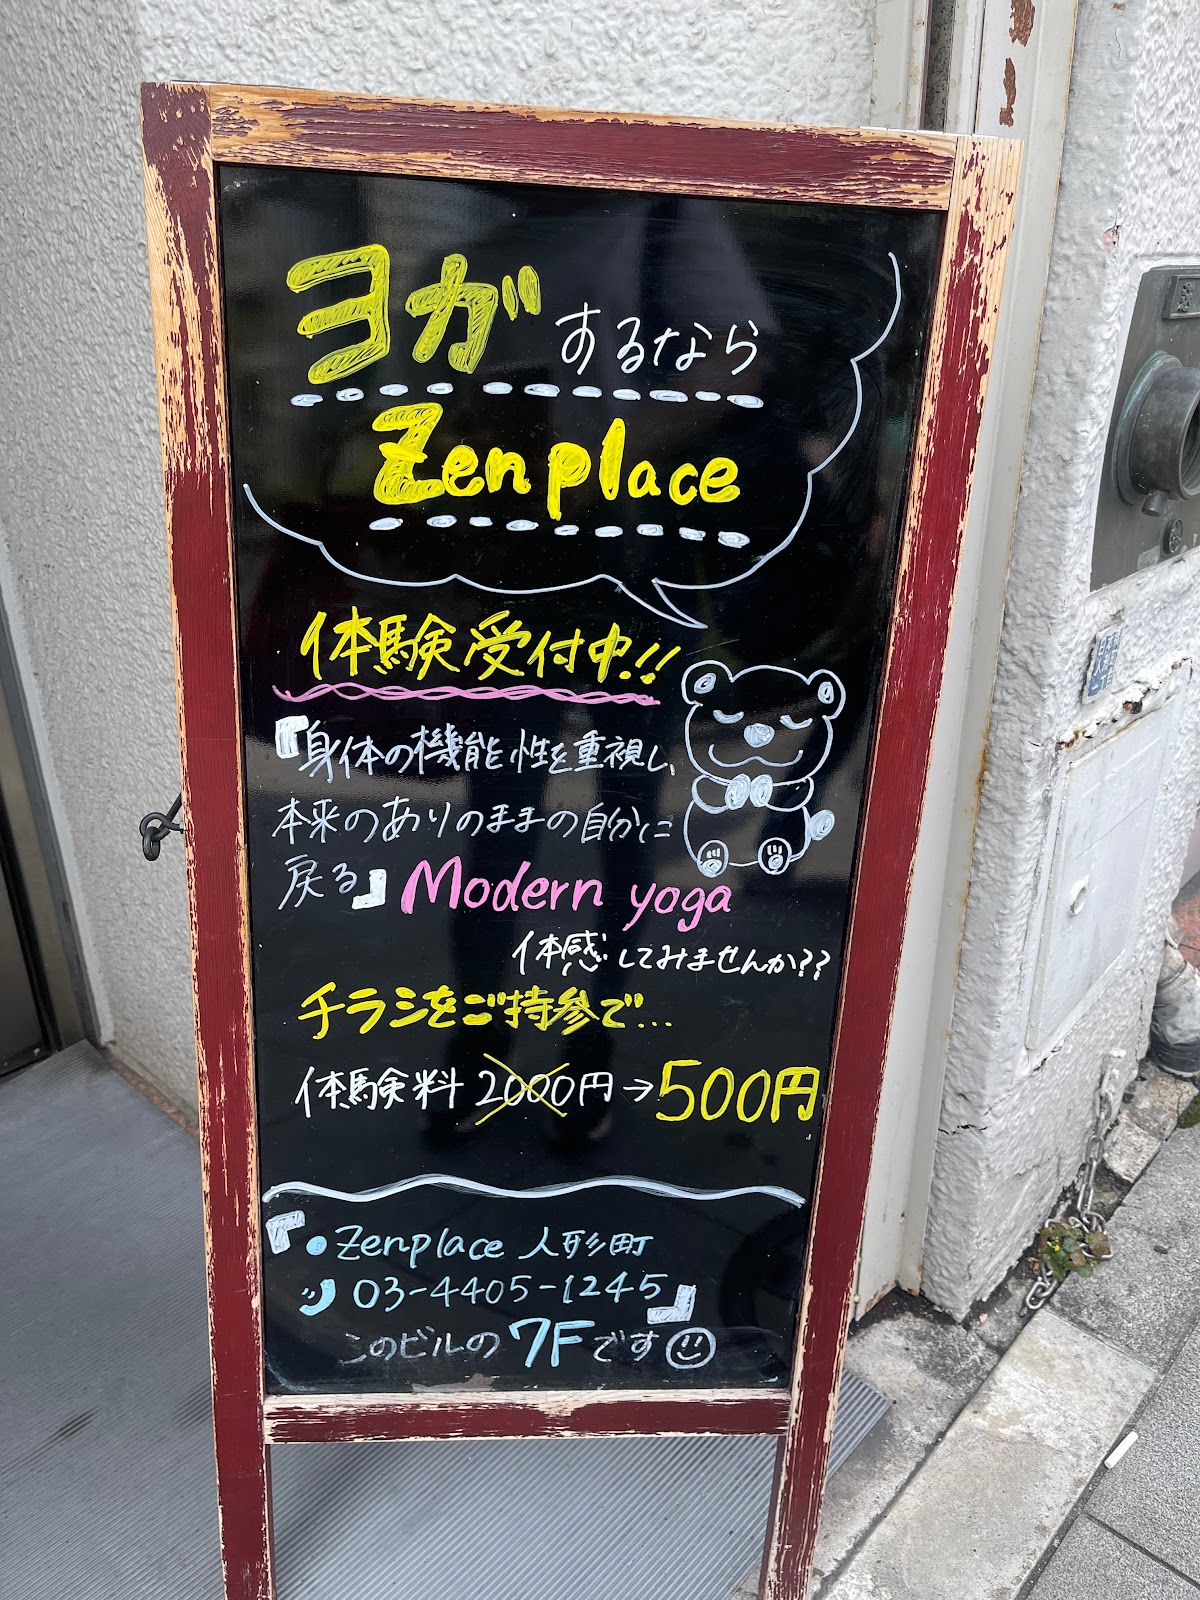 ヨガするなら
Zen place
体験受付中!!
『身体の機能性を重視し、
本来のありのままの自分に
戻る』Modern yoga
体感してみませんか??
チラシをご持参で...
体験料 2000円→500円
『●Zenplace 人形町
03-4405-1245』
このビルの7Fです